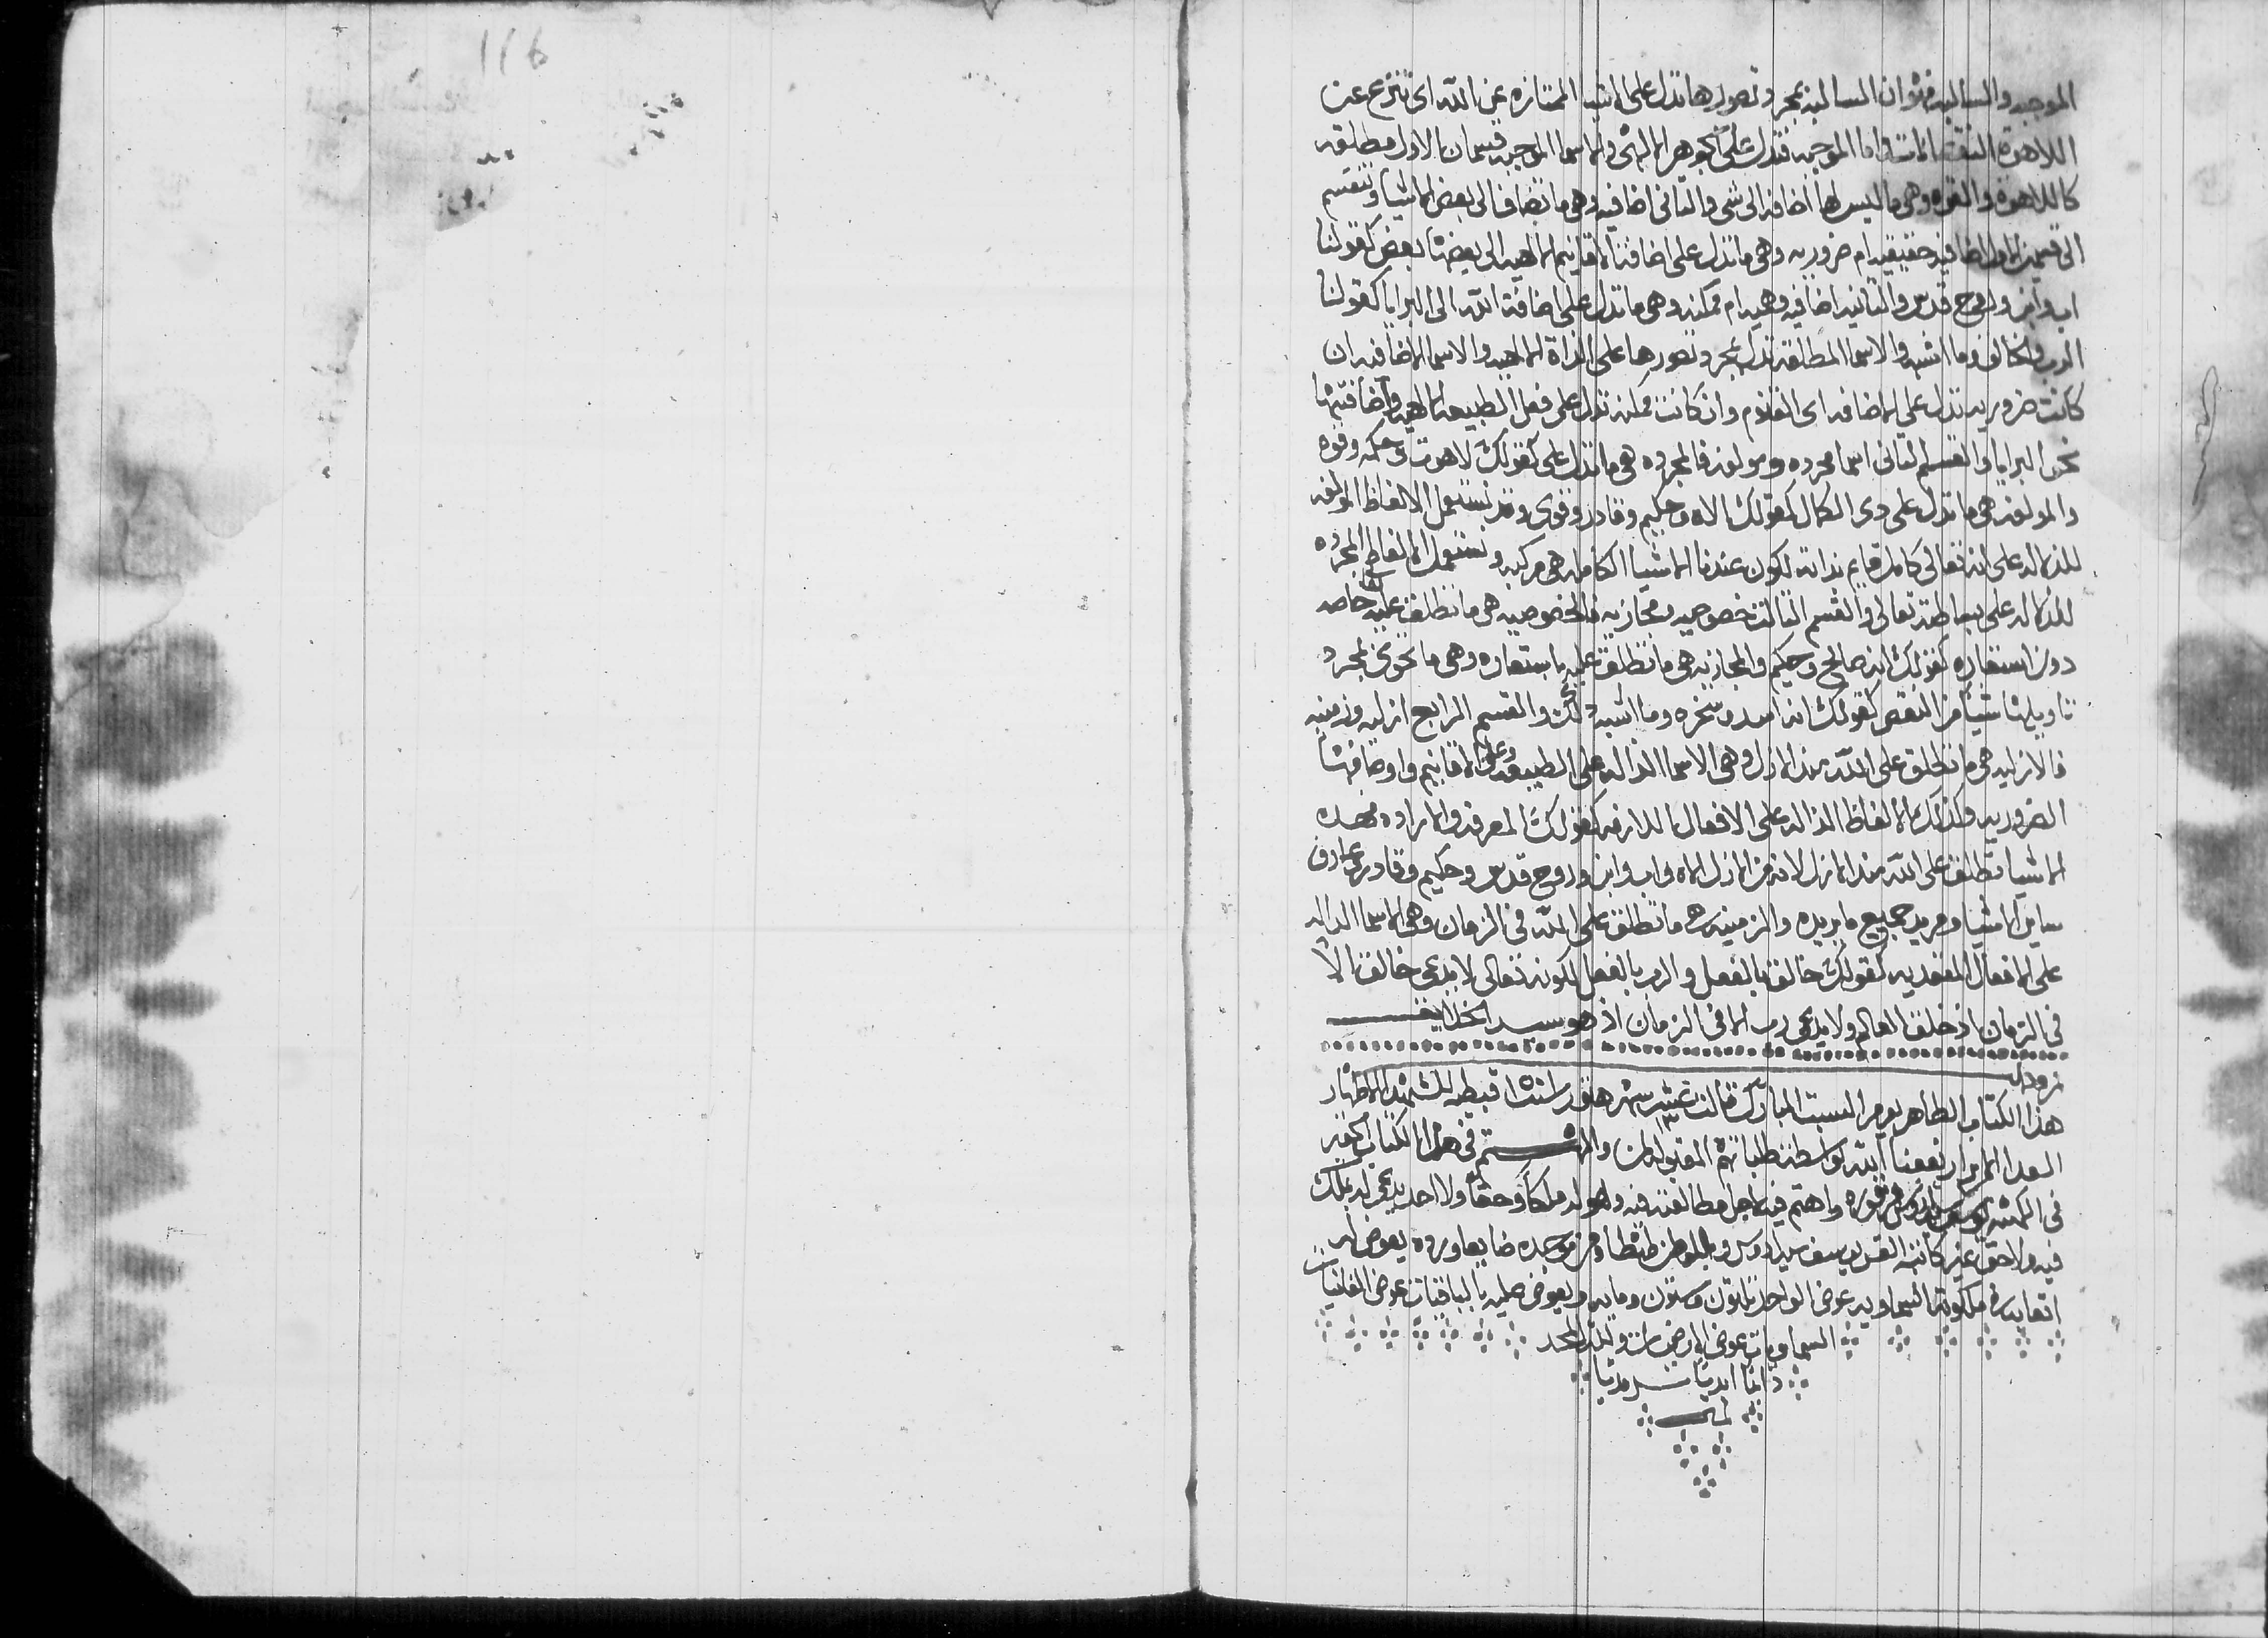 116
الموجبه والسالبه فهو ان السالبه بمجرد تصورها تدل على اشيا الممتازه عن الله اى تنزع عن
اللاهوة النقص واما الموجبه فتدل على الجوهر الالهى والاسما الموجبه قسمان الاول مطلقه
كاللاهوة والقوه وهى ما ليس لها اضافه الى شى والثانى اضافيه وهى ما تضاف الى بعض الاشيا وتنقسم
الى قسمين الاول اضافيه حقيقيه ام ضروريه وهى ما تدل على اضافة الاقانيم الالهيه الى بعضها بعض كقولنا
اب وابن وروح قدس والثانيه اضافيه وهميه ام ممكنه وهى ما تدل على اضافة الله الى البرايا كقولنا
الرب والخالق وما اشبه والاسما المطلقه تدل بمجرد تصورها على الذاة الالهيه والاسما الاضافيه ان
كانت ضروريه تدل على الاضافه اى القنوم وان كانت ممكنه تدل على فعل الطبيعه الالهيه واضافتها
نحو البرايا والقسم الثانى اسما مجرده ومولفه فالمجرده هى ما تدل على كقولك لاهوت وحكمه وقوه
والمولفه هى ما تدل على ذى الكمال كقولك الاه وحكيم وقادر وقوى وقد نستعمل الالفاظ المولفه
للدلاله على انه تعالى كامل قايم بذاته لكون عندنا الاشيا الكامله هى مركبه ونستعمل الالفاظ المجرده
للدلاله على بساطته تعالى والقسم الثالث خصوصيه ومجازيه فالخصوصيه هى ما تطلق عليه خاصه
دون استعاره كقولك انه صالح وحكيم والمجازيه هى ما تطلق عليه باستعاره وهى ما تحوى بمجرد
تاويلها شيا من النقص كقولك انه اسد وصخره وما اشبه ذلك والقسم الرابع ازليه وزمنيه
فالازليه هى ما تطلق على الله منذ الازل وهى الاسما الداله على الطبيعه وعلى الاقانيم واوصافها
الضروريه وكذلك الالفاظ الداله على الافعال اللازمه كقولك المعرفه والاراده فهذه
الاشيا تطلق على الله منذ الازل لانه من الازل الاه واب وابن وروح قدس وحكيم وقادر وعارف
ساير الاشيا ومريد جميع ما يريده والزمنيه هى ما تطلق على الله فى الزمان وهى الاسما الداله
على الافعال المتعديه كقولك خالق بالفعل والرب بالفعل لكونه تعالى لا يدعى خالق الا
فى الزمان اذ خلق العالم ولا يدعى رب الا فى الزمان اذ هو سيد الخلايق
هذا الكتاب الطاهر يوم السبت المبارك ثالث عشر شهر هتور قبطيه للشهدا الاطهار
السعدا الابرار نفعنا الله بواسطة طلباتهم المقبوله امين والمهتم فى هذا الكتاب
واهتم فيه لاجل مطالعته فيه وهو له ملكا وحقا ولا احد يدعى له بملك
فيه والحق غير كاتبه القس يوسف ومن وجده ضايعا ورده يعوض له
اتعابه فى ملكوته السماويه عوض الواحد ثلثون وستون ومايه ويعوض عليه بالباقيات عوض الفانيات
السماويات عوض الارضيات ولله المجد
دايما ابديا سرمديا
امين